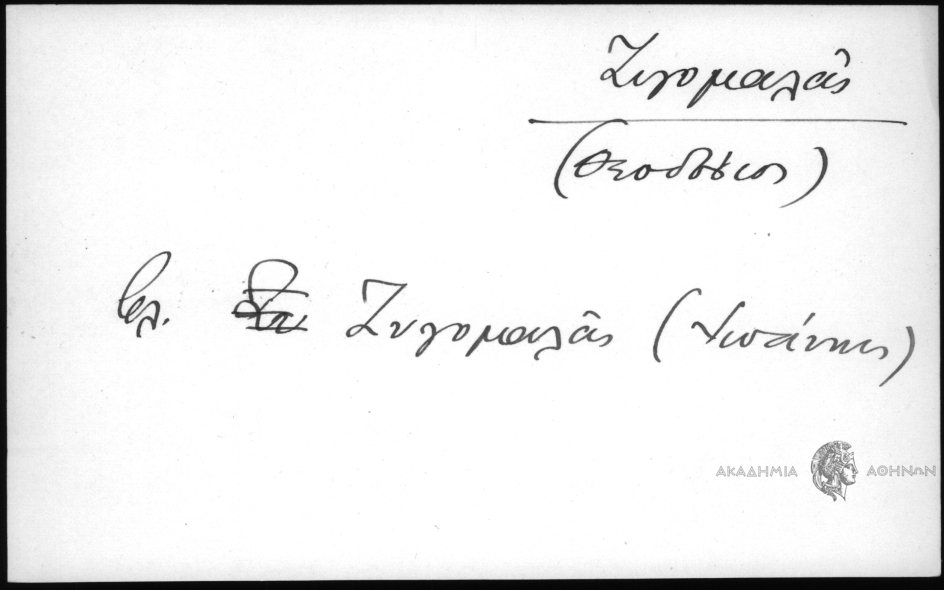 Ζυγομαλᾶς
(Θεοδόσιος)
βλ. Ζυγομαλᾶς (Ἰωάννης)
ΑΚΑΔΗΜΙΑ ΑΘΗΝΩΝ